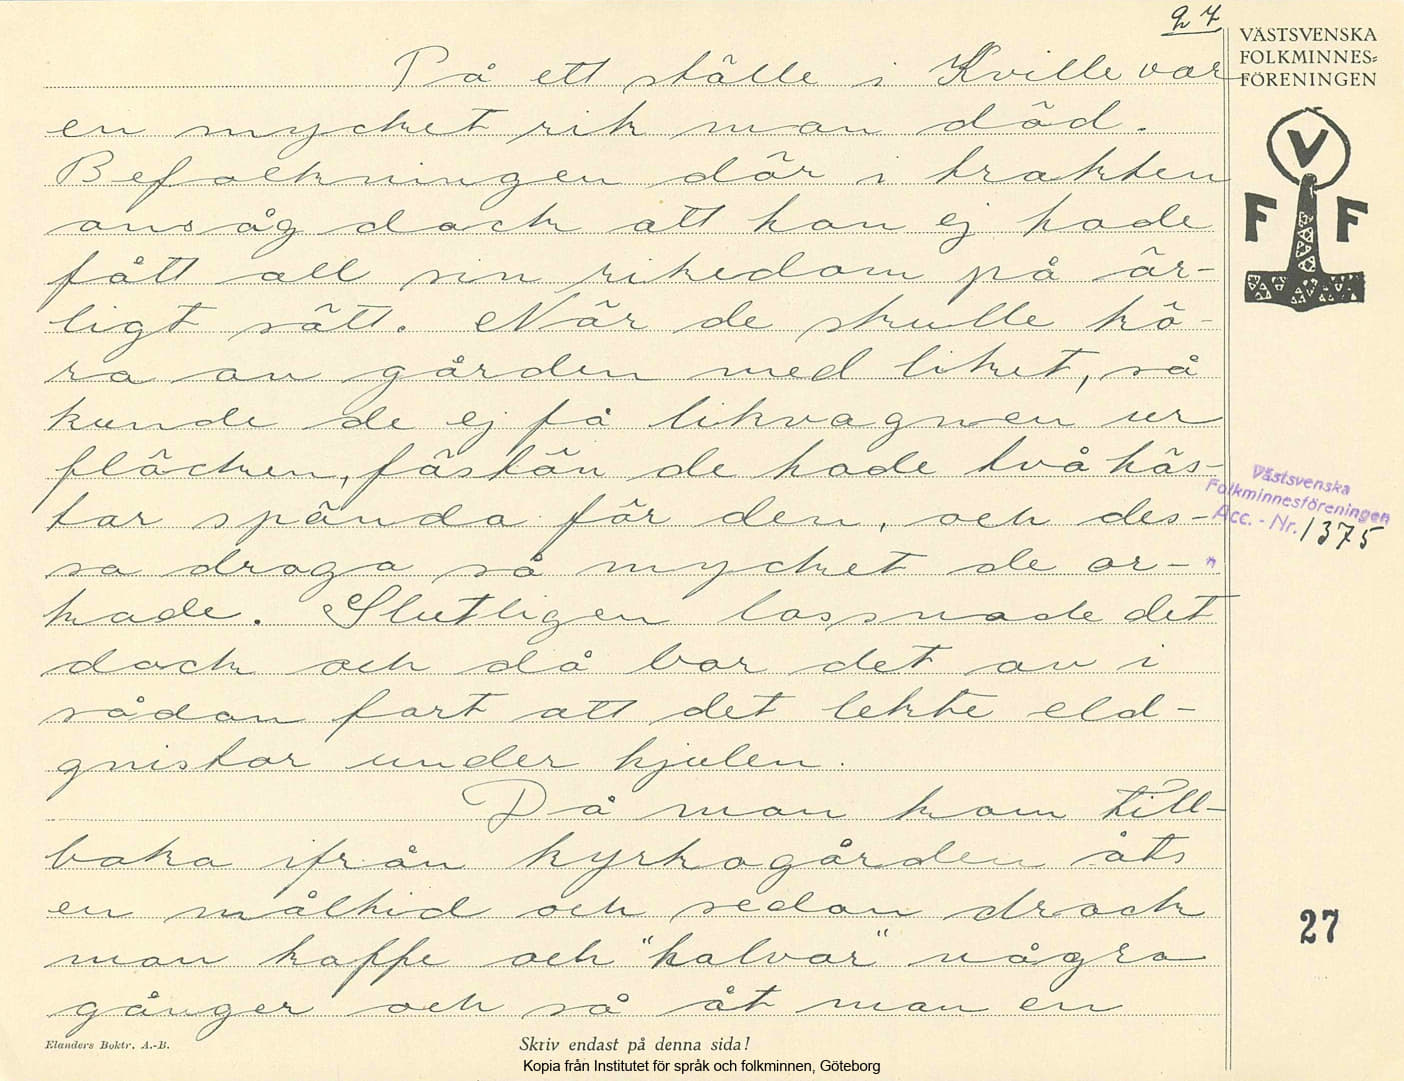 27
VÄSTSVENSKA
FOLKMINNES-
FÖRENINGEN
V
F F
På ett ställe i Kville var
en mycket rik man död.
Befolkningen där i trakten
ansåg dock att han ej hade
fått all sin rikedom på är-
ligt sätt. När de skulle kö-
ra av gården med liket, så
kunde de ej få likvagnen ur
fläcken, fästän de hade två häs-
tar spända för den, och des-
sa droga så mycket de or-
kade. Slutligen lossnade det
dock och då bar det av i
sådan fart att det lekte eld-
gnistor under hjulen.
Då man kom till-
baka ifrån kyrkogården åts
en måltid och sedan drack
man kaffe och "halvar" några
gånger och så åt man en
Västsvenska
Folkminnesföreningen
Acc. - Nr. 1375
27
Elanders Boktr. A.-B.
Skriv endast på denna sida!
Kopia från Institutet för språk och folkminnen, Göteborg